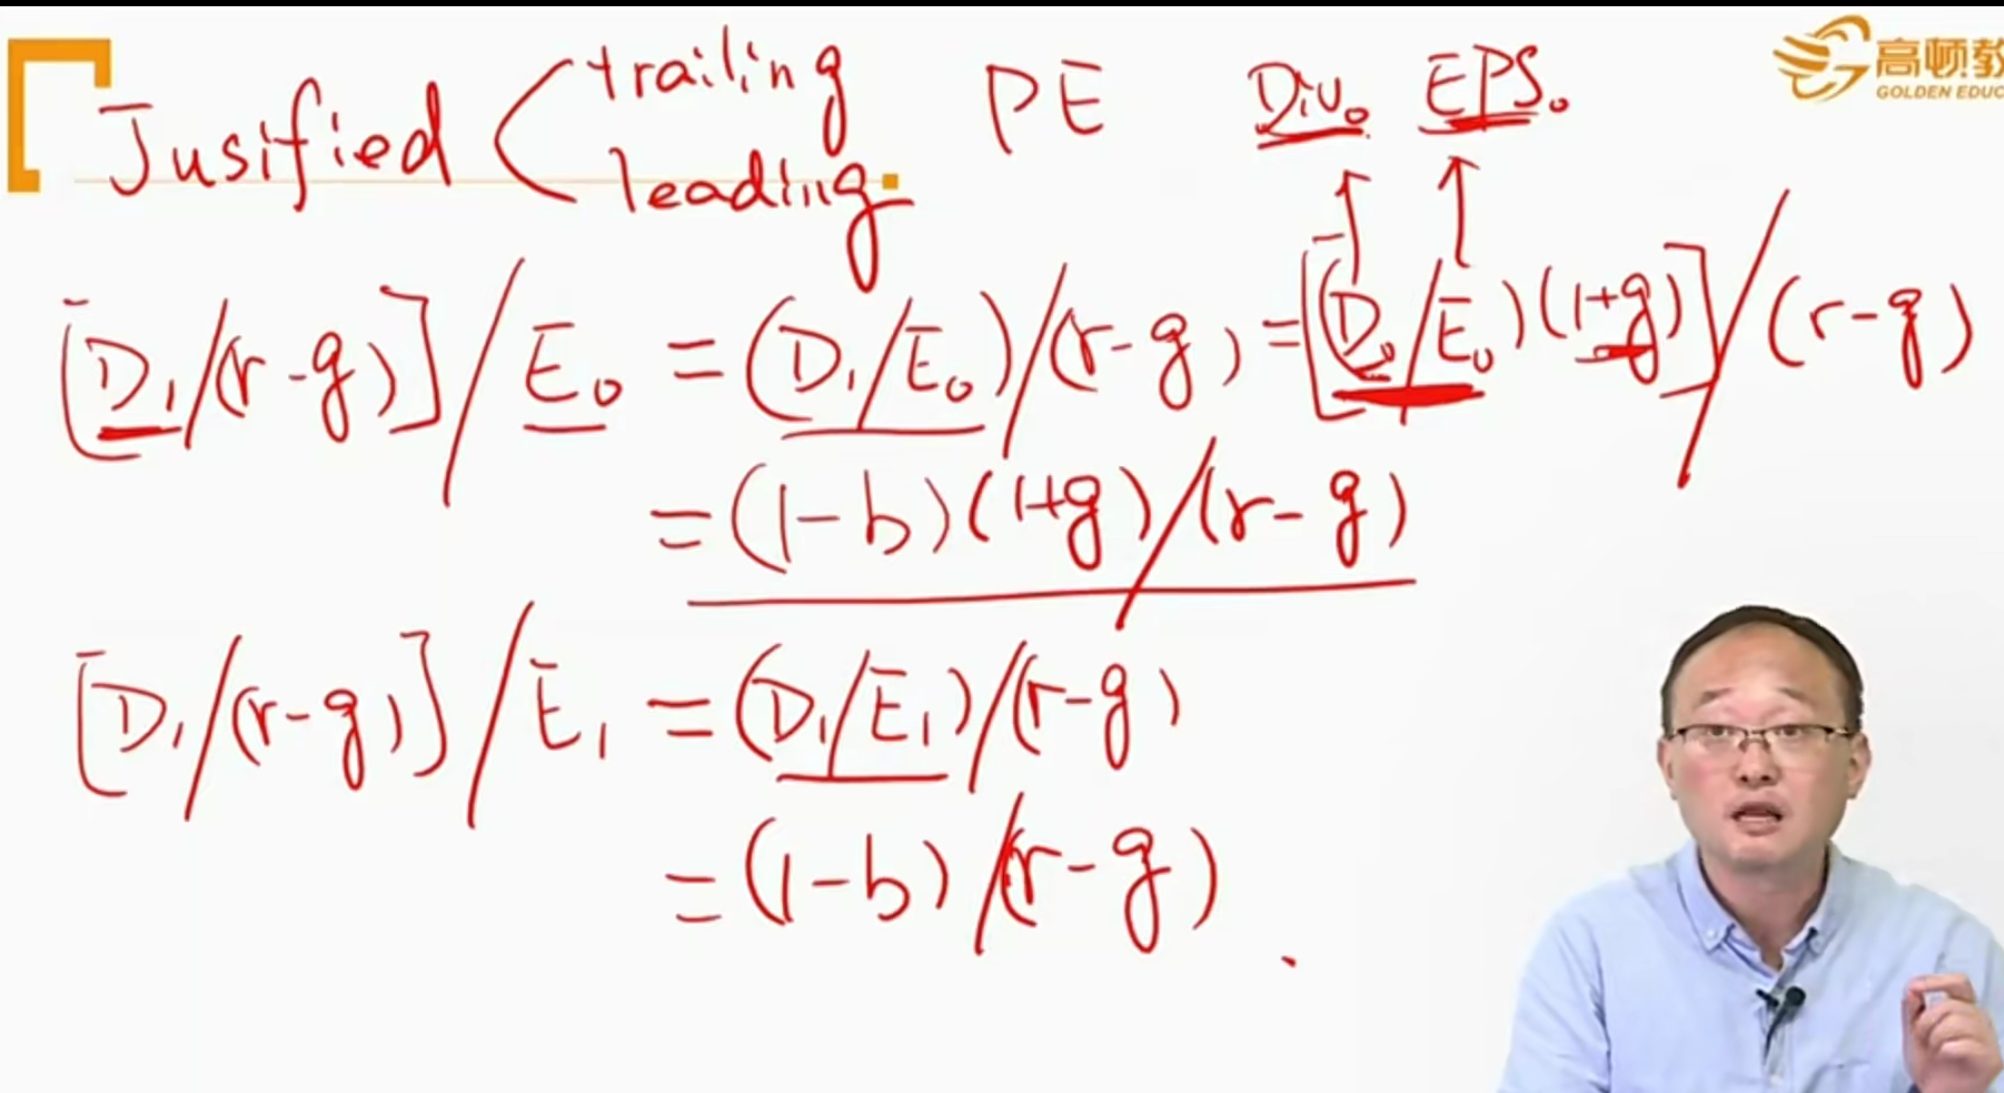 高顿教
GOLDEN EDUC
Jusified trailing leading PE Div₀ EPS₀
[D₁/(r-g)]/E₀ = (D₁/E₀)/(r-g) = [(D₀/E₀)(1+g)]/(r-g)
=(1-b)(1+g)/(r-g)
[D₁/(r-g)]/E₁ = (D₁/E₁)/(r-g)
=(1-b)/(r-g)